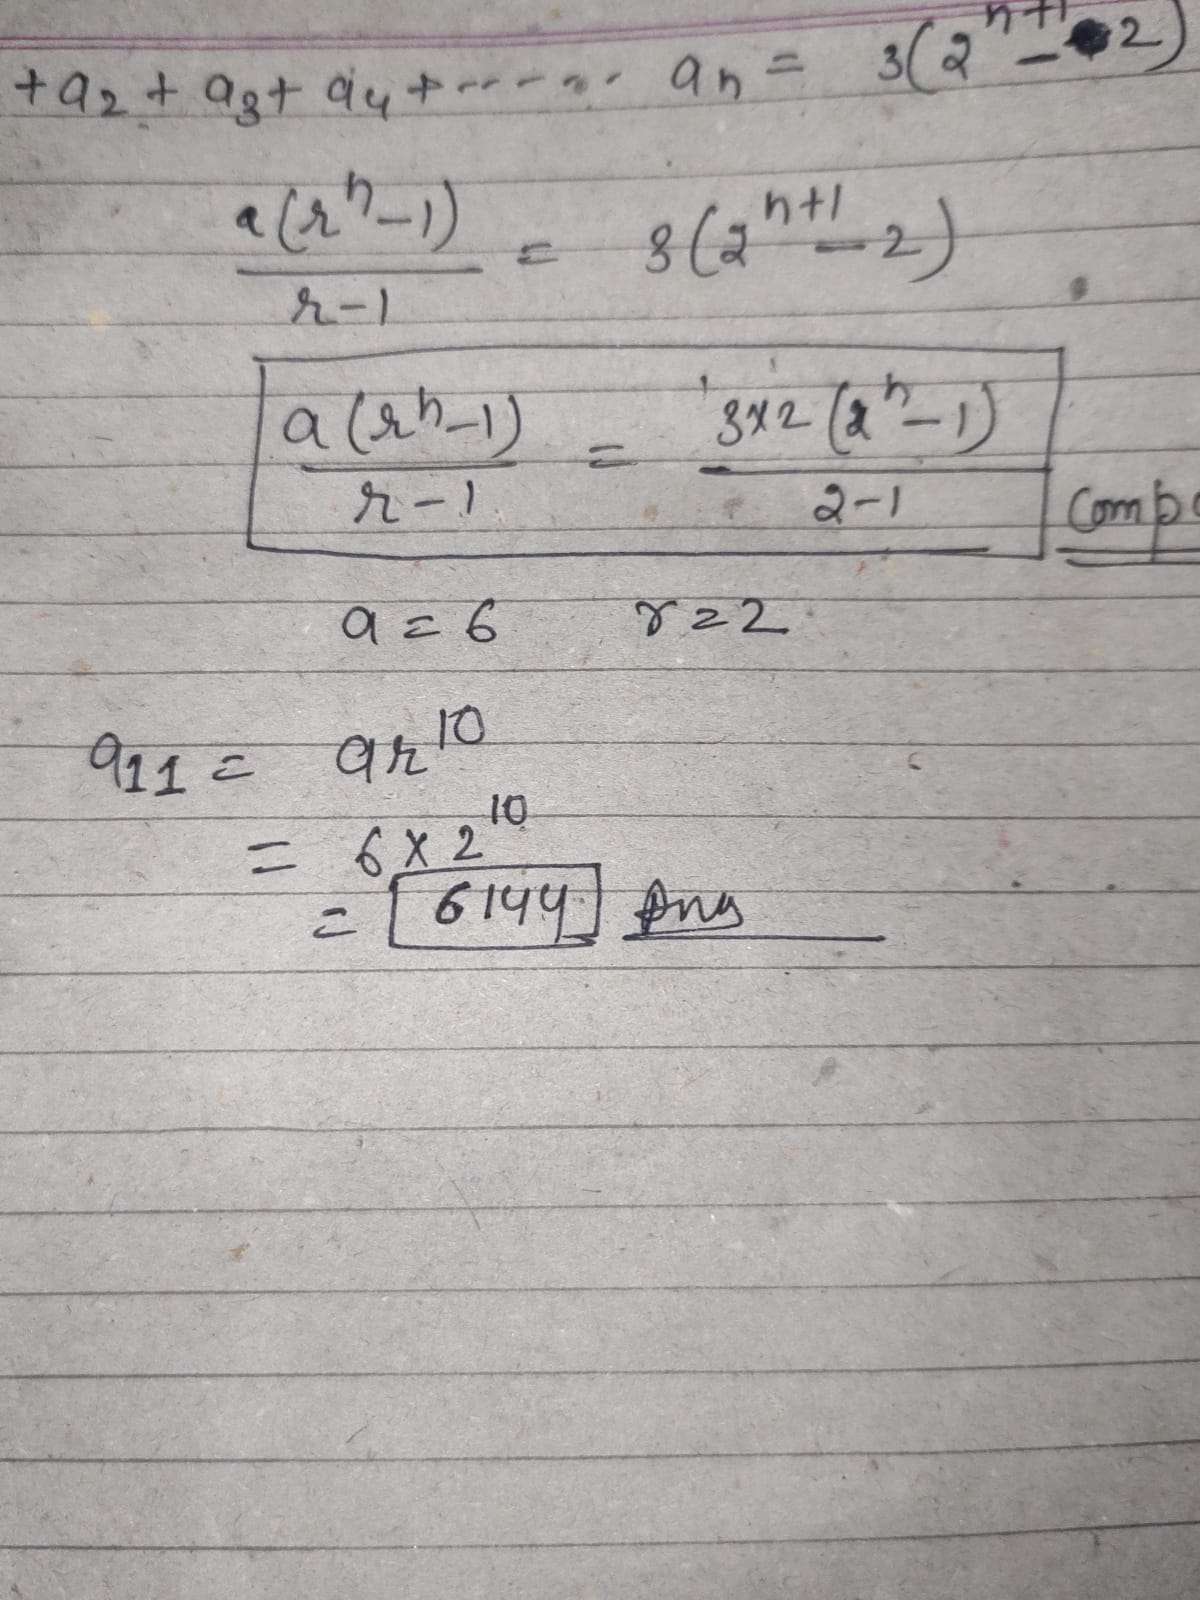 +a₂ + a₃ + a₄ + ------- aₙ = 3(2ⁿ⁺¹ - 2)
a(rⁿ-1)/(r-1) = 3(2ⁿ⁺¹ - 2)
a(rⁿ-1)/(r-1) = 3×2(2ⁿ-1)/(2-1)
a = 6 r = 2
a₁₁ = ar¹⁰
= 6 × 2¹⁰
= 6144 Ans